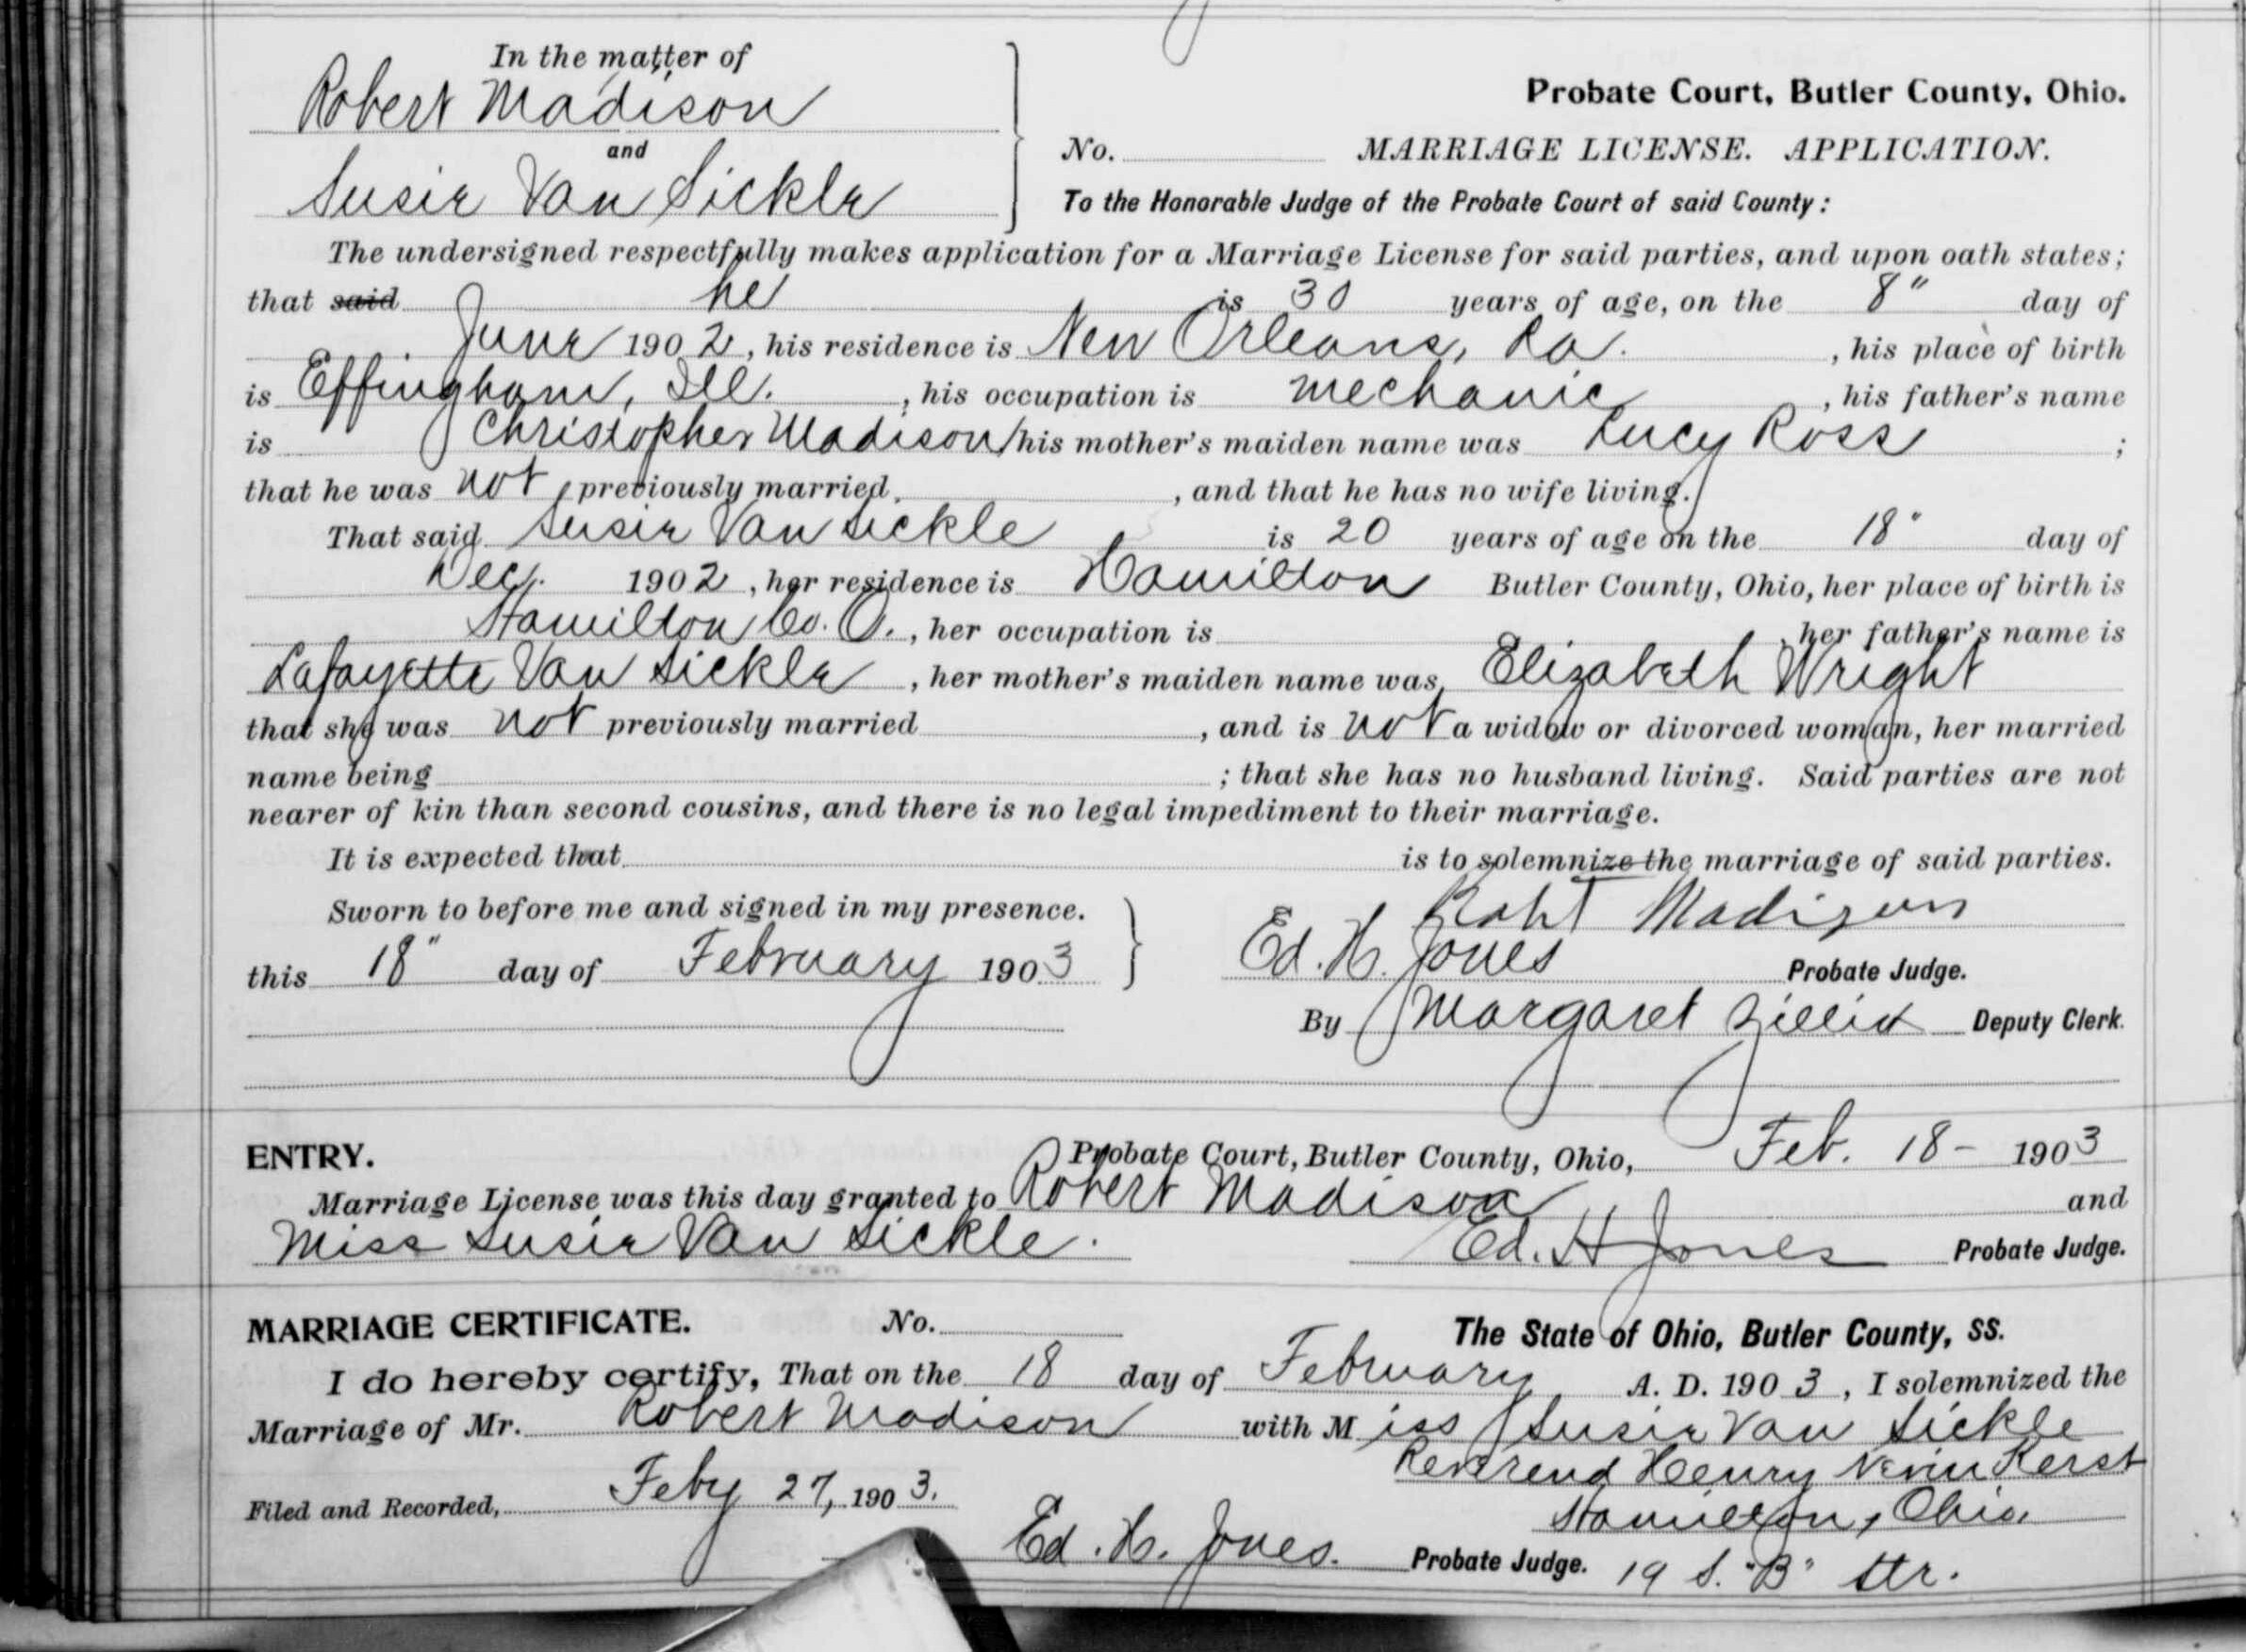 In the matter of
Robert Madison
and
Susie Van Sickle
Probate Court, Butler County, Ohio.
No. MARRIAGE LICENSE. APPLICATION.
To the Honorable Judge of the Probate Court of said County:
The undersigned respectfully makes application for a Marriage License for said parties, and upon oath states;
that said he is 30 years of age, on the 8" day of
June 1902, his residence is New Orleans, La. , his place of birth
is Effingham, Ill. , his occupation is mechanic , his father's name
is Christopher Madison, his mother's maiden name was Lucy Ross ;
that he was not previously married, , and that he has no wife living.
That said Susie Van Sickle is 20 years of age on the 18" day of
Dec. 1902, her residence is Hamilton Butler County, Ohio, her place of birth is
Hamilton Co. O., her occupation is , her father's name is
Lafayette Van Sickle , her mother's maiden name was, Elizabeth Wright
that she was not previously married , and is not a widow or divorced woman, her married
name being ; that she has no husband living. Said parties are not
nearer of kin than second cousins, and there is no legal impediment to their marriage.
It is expected that is to solemnize the marriage of said parties.
Sworn to before me and signed in my presence. Robt Madison
this 18" day of February 1903 Ed. H. Jones Probate Judge.
By Margaret Deputy Clerk.
ENTRY. Probate Court, Butler County, Ohio, Feb. 18- 1903
Marriage License was this day granted to Robert Madison and
Miss Susie Van Sickle. Ed. H Jones Probate Judge.
MARRIAGE CERTIFICATE. No. The State of Ohio, Butler County, SS.
I do hereby certify, That on the 18 day of February A. D. 1903, I solemnized the
Marriage of Mr. Robert Madison with Miss Susie Van Sickle
Reverend Henry Nevin Kerst
Filed and Recorded, Feby 27, 1903. Hamilton, Ohio.
Ed. H. Jones. Probate Judge. 19 S. "B" Str.